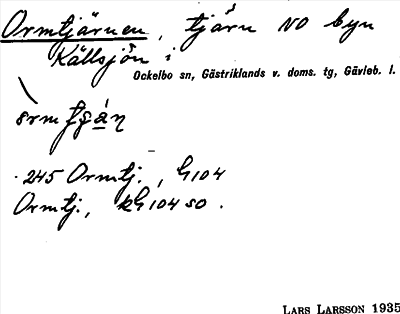 Ormtjärnen, tjärn NO byn
Källsjön i
Ockelbo sn, Gästriklands v. doms. tg, Gävleb. l.
245 Ormtj., G104
Ormtj., kG104 so.
LARS LARSSON 1935